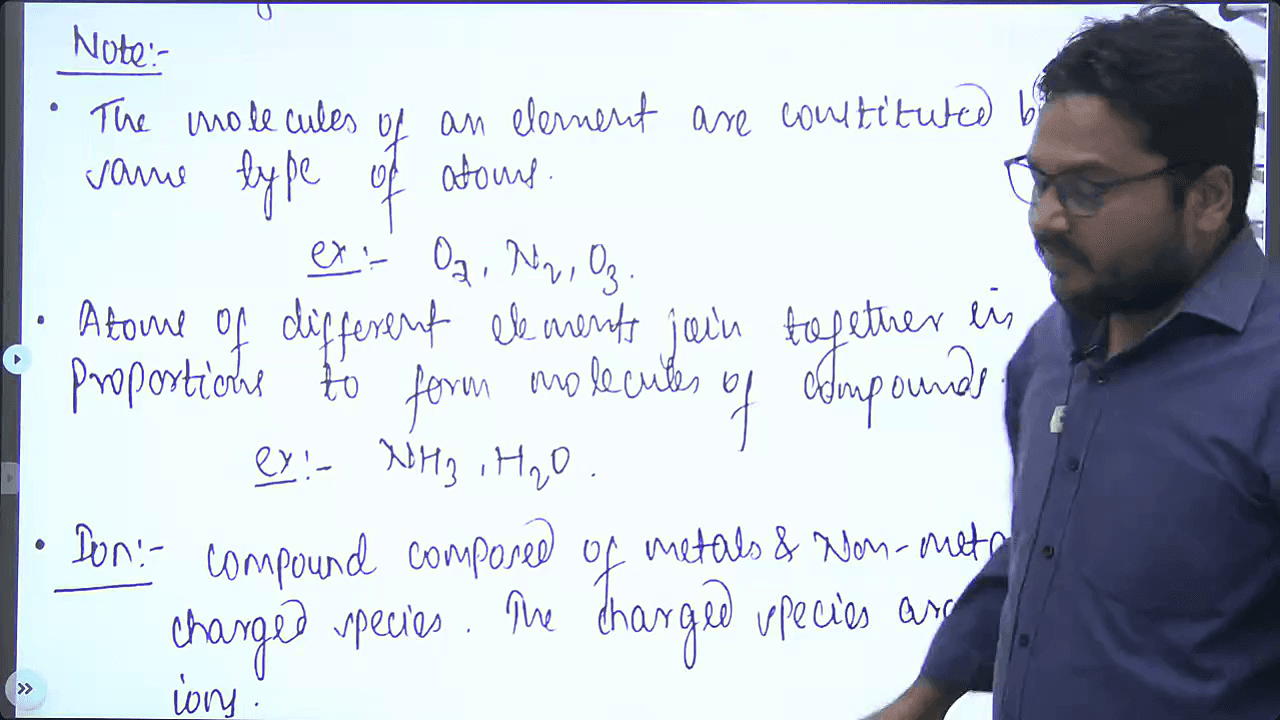 Note:-
• The molecules of an element are constituted b
same type of atoms.
ex:- O2, N2, O3.
• Atoms of different elements join together in
proportions to form molecules of compounds.
ex:- NH3, H2O.
• Ion:- compound composed of metals & Non-meta
charged species. The charged species are
ions.